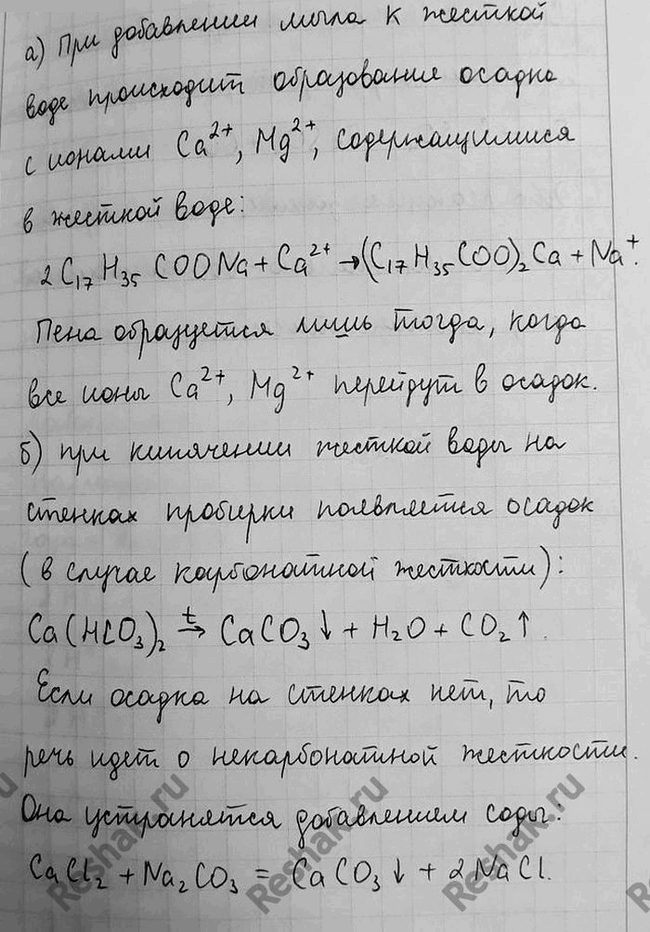 а) При добавлении мыла к жесткой
воде происходит образование осадка
с ионами Ca²⁺, Mg²⁺, содержащимися
в жесткой воде:
2C₁₇H₃₅COONa + Ca²⁺ → (C₁₇H₃₅COO)₂Ca + Na⁺.
Пена образуется лишь тогда, когда
все ионы Ca²⁺, Mg²⁺ перейдут в осадок.
б) при кипячении жесткой воды на
стенках пробирки появляется осадок
(в случае карбонатной жесткости):
Ca(HCO₃)₂ →ᵗ CaCO₃↓ + H₂O + CO₂↑.
Если осадка на стенках нет, то
речь идет о некарбонатной жесткости.
Она устраняется добавлением соды:
CaCl₂ + Na₂CO₃ = CaCO₃↓ + 2NaCl.
Reshak.ru
Reshak.ru
Reshak.ru